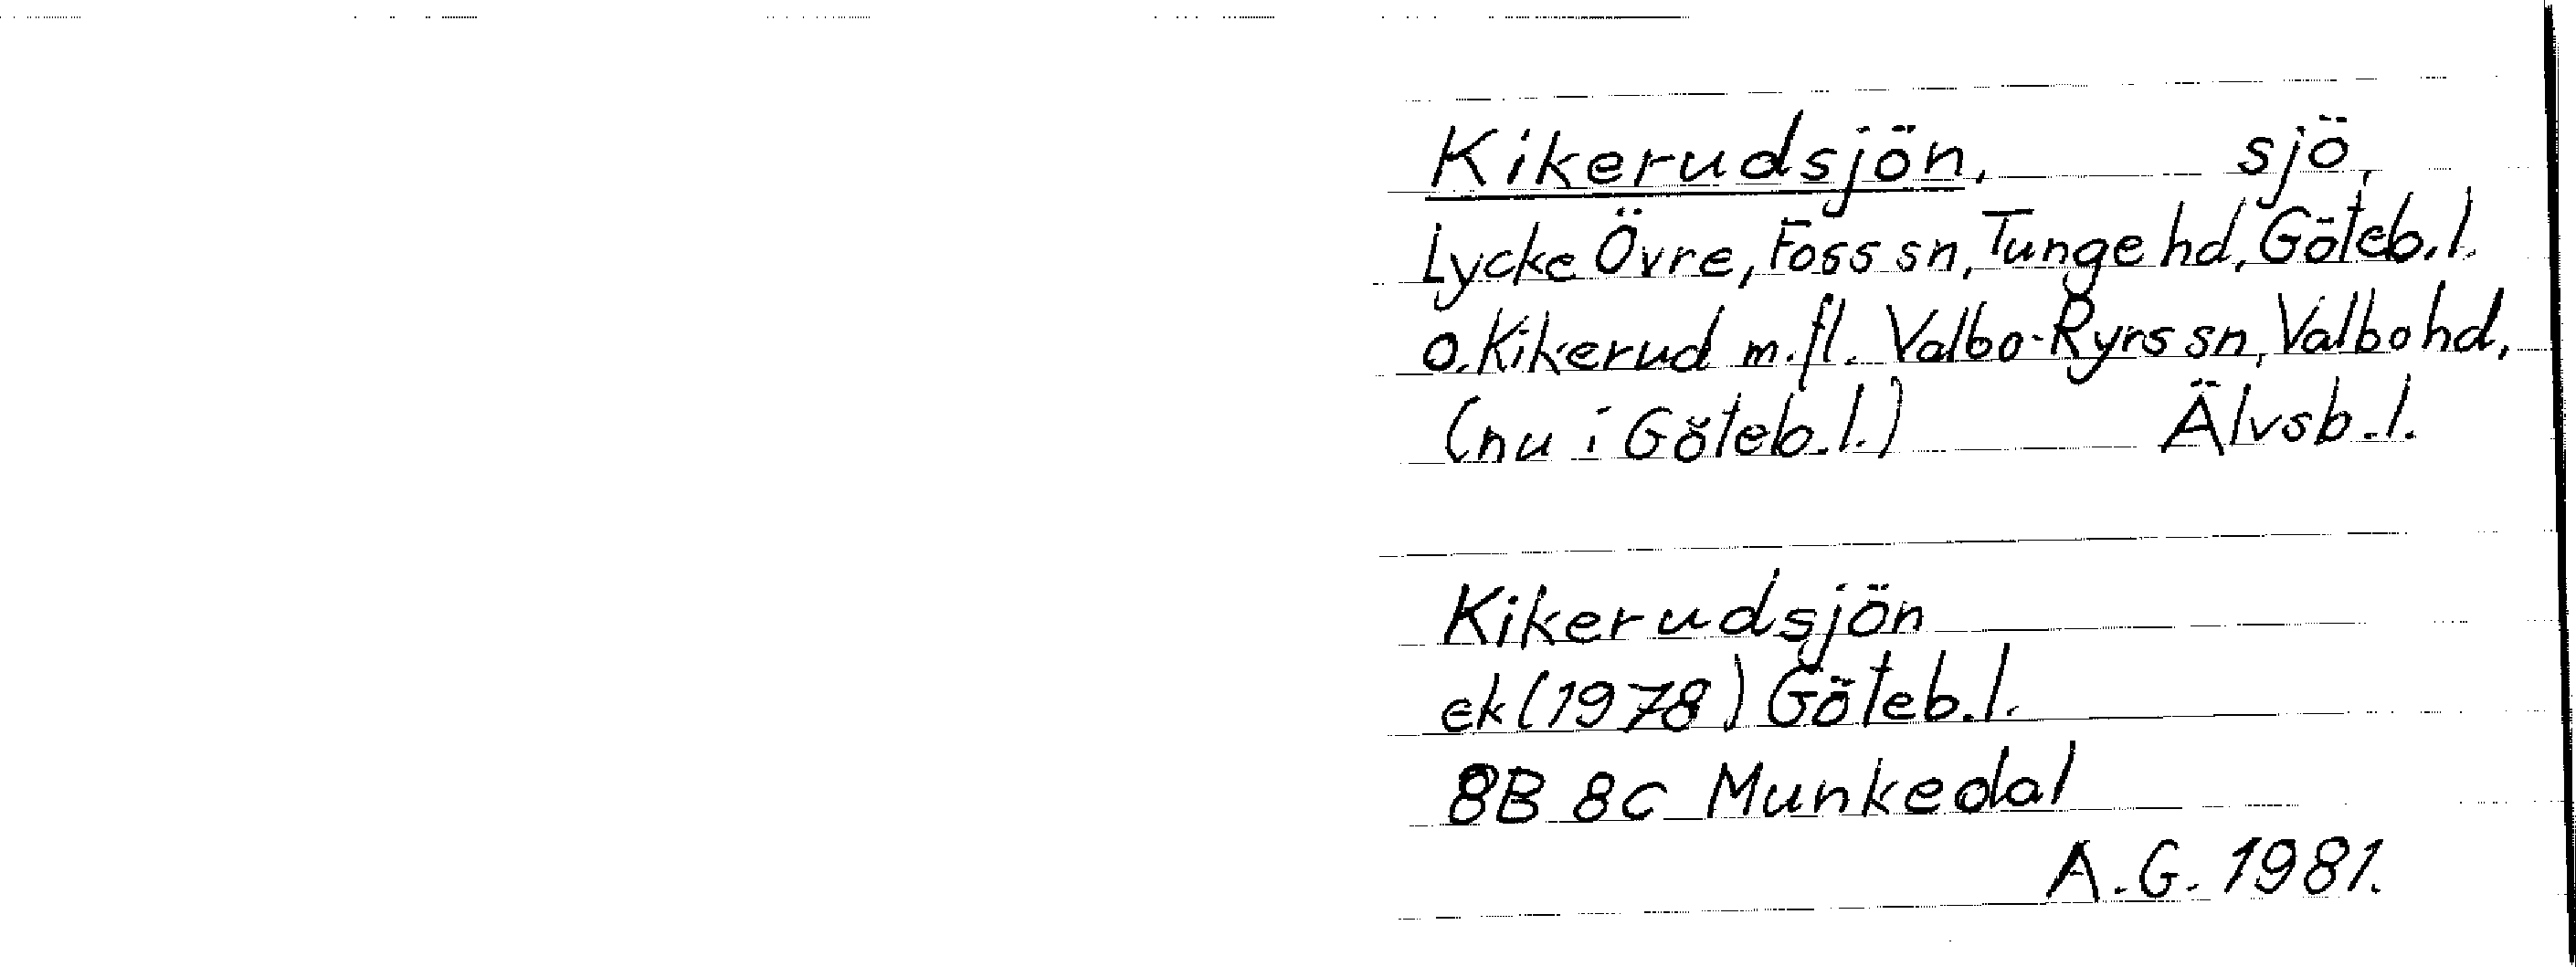 Kikerudsjön, sjö,
Lycke Övre, Foss sn, Tunge hd, Göteb. l.
o. Kikerud m.fl. Valbo-Ryrs sn, Valbo hd,
(nu i Göteb. l.) Älvsb. l.
Kikerudsjön
ek (1978) Göteb. l.
8B 8c Munkedal
A.G. 1981.